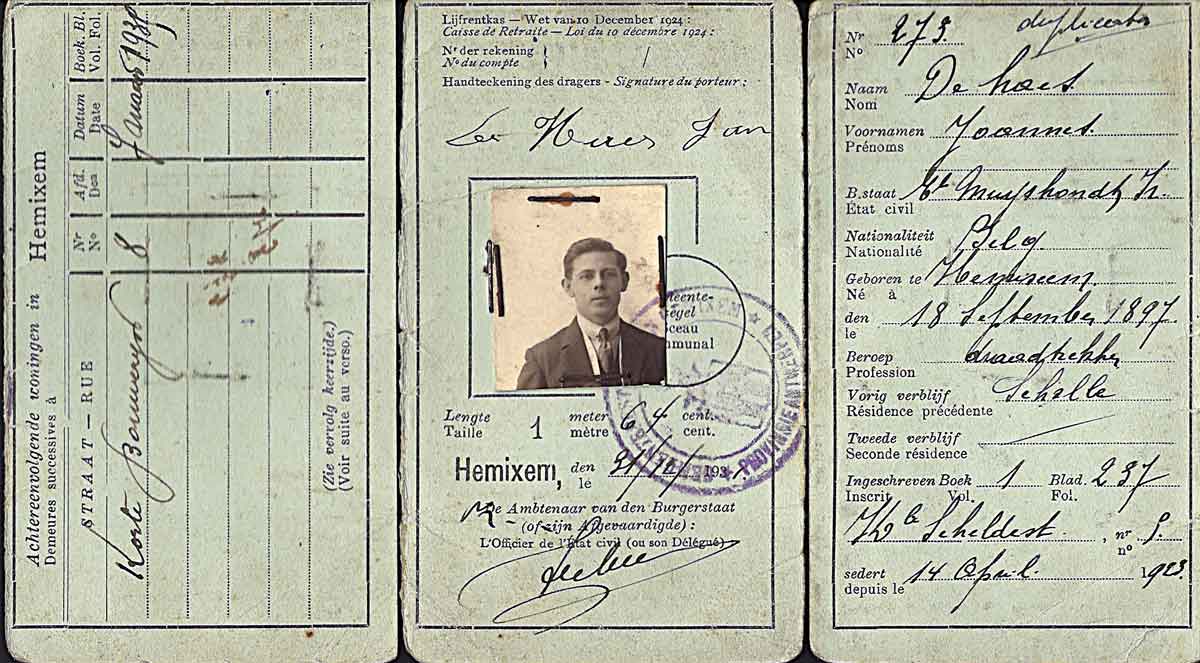 Achtereenvolgende woningen in
Demeures successives à
Hemixem
STRAAT — RUE
Nr
N°
Afd.
Dea
Datum
Date
Boek. Bl.
Vol. Fol.
Korte
8
(Zie vervolg keerzijde.)
(Voir suite au verso.)
Lijfrentkas — Wet van 10 December 1924 :
Caisse de Retraite — Loi du 10 décembre 1924 :
Nr der rekening
N° du compte
Handteekening des dragers - Signature du porteur :
Jan
meente-
egel
ceau
mmunal
PROVINCIE ANTWERPEN
Lengte
Taille
1
meter
mètre
64
cent.
cent.
Hemixem,
den
le
31/12/193
De Ambtenaar van den Burgerstaat
(of zijn Afgevaardigde) :
L'Officier de l'État civil (ou son Délégué)
Nr
N°
273
Naam
Nom
De haes
Voornamen
Prénoms
Joannes.
B. staat
État civil
Muyshondt
Nationaliteit
Nationalité
Belg
Geboren te
Né à
Hemixem
den
le
18 September 1897
Beroep
Profession
draadtrekker
Vorig verblijf
Résidence précédente
Schelle
Tweede verblijf
Seconde résidence
Ingeschreven Boek
Inscrit Vol.
1
Blad.
Fol.
237
Scheldest.
, nr
n°
sedert
depuis le
14 April
1923.